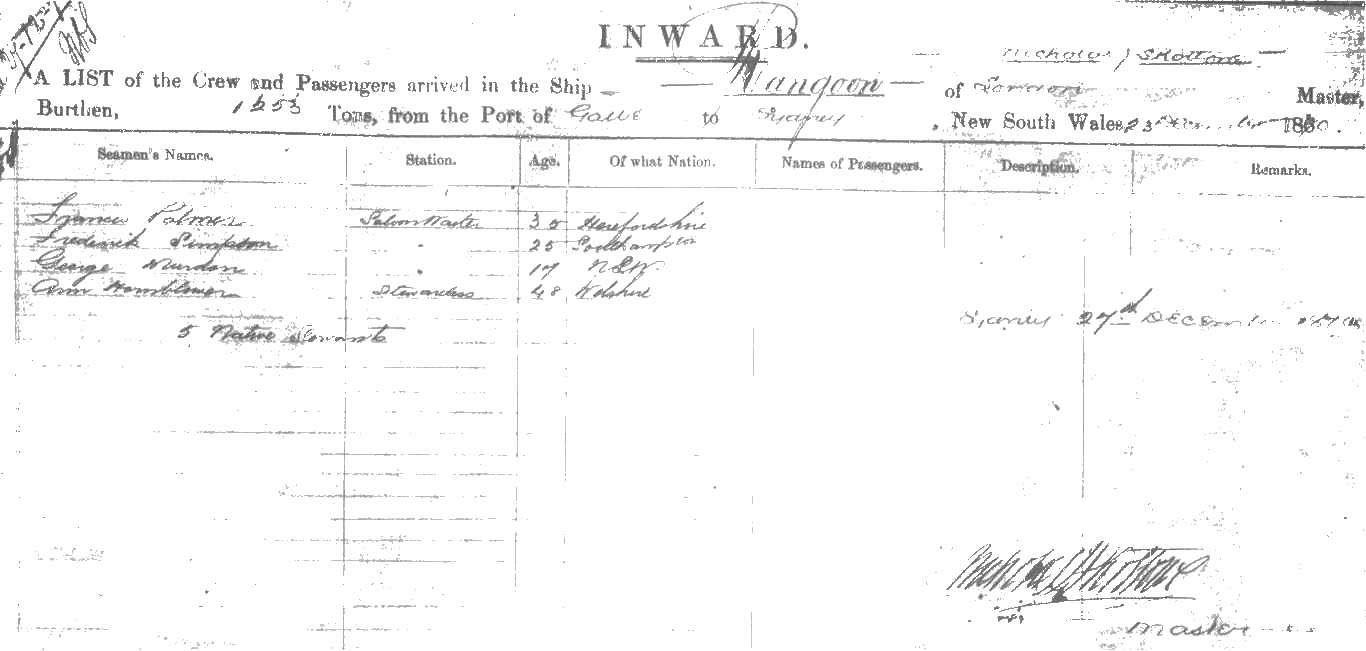 INWARD.
Nicholas J Skottowe
A LIST of the Crew and Passengers arrived in the Ship Rangoon of London Master,
Burthen, Tons, from the Port of Galle to Sydney, New South Wales, 23 December 1870.
Seamen's Names. Station. Age. Of what Nation. Names of Passengers. Description. Remarks.
Francis Palmer Saloon Waiter 32 Herefordshire
Frederick Simpson " 25 Southampton
George " 17 N.S.W.
Ann Hornblower Stewardess 48 Wilshire
5 Native Servants
Sydney 27th DECEMBER
Nicholas J Skottowe
Master